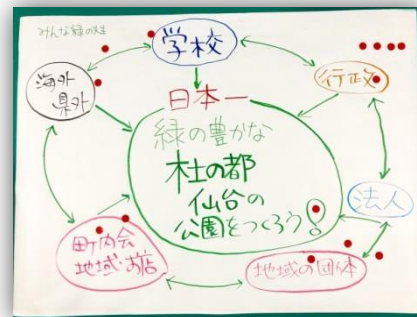 みんな緑の
学校
海外
県外
行政
日本一
緑の豊かな
杜の都
仙台の
公園をつくろう!
法人
町内会
地域・お店
地域の団体